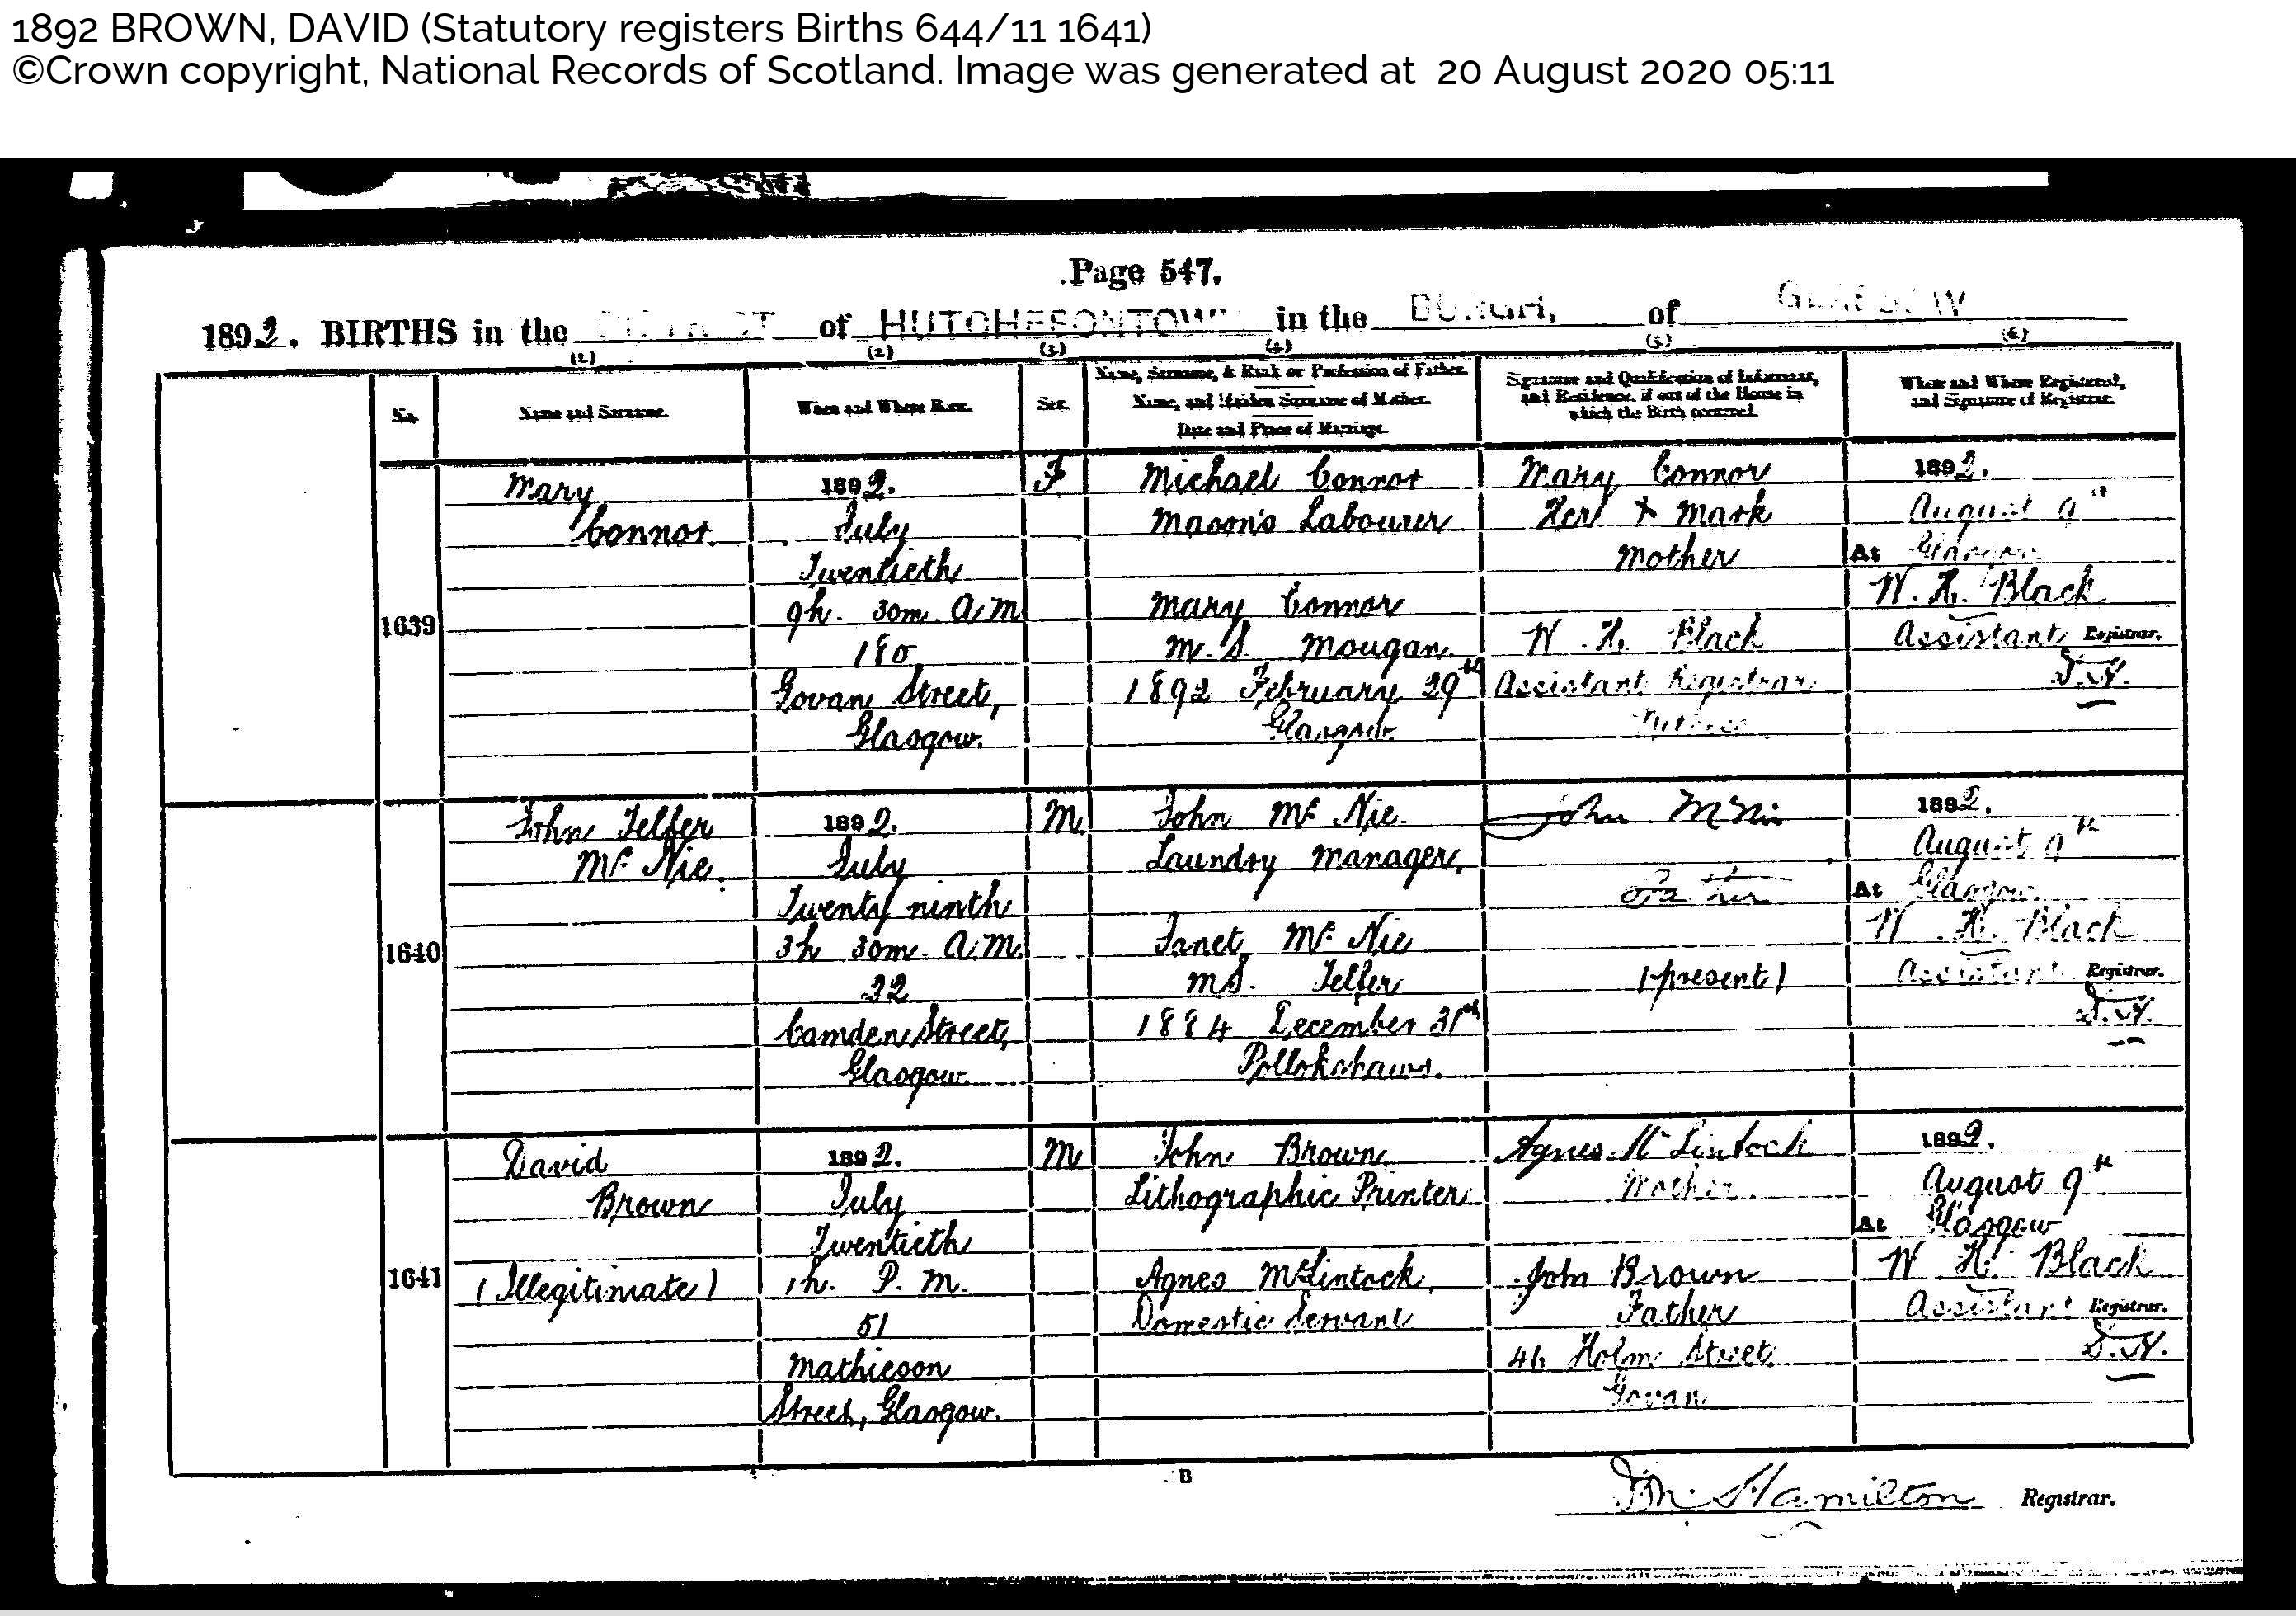 1892 BROWN, DAVID (Statutory registers Births 644/11 1641)
©Crown copyright, National Records of Scotland. Image was generated at 20 August 2020 05:11
Page 547.
1892. BIRTHS in the DISTRICT of HUTCHESONTOWN in the BURGH, of GLASGOW
(1.) (2.) (3.) (4.) (5.) (6.)
No.
Name and Surname.
When and Where Born.
Sex.
Name, Surname, & Rank or Profession of Father.
Name, and Maiden Surname of Mother.
Date and Place of Marriage.
Signature and Qualification of Informant,
and Residence, if out of the House in
which the Birth occurred.
When and Where Registered,
and Signature of Registrar.
1639
Mary
Connor.
1892.
July
Twentieth
9h. 30m. A.M
180
Govan Street,
Glasgow.
F
Michael Connor
Mason's Labourer
Mary Connor
M.S. Mougan.
1892 February 29th
Glasgow.
Mary Connor
Her X Mark
Mother
W. H. Black
Assistant Registrar
Witness
1892.
August 9th
At Glasgow
W. H. Black
Assistant Registrar.
1640
John Telfer
McNie.
1892.
July
Twenty ninth
3h 30m. A.M.
32
Camden Street,
Glasgow.
M.
John McNie.
Laundry Manager.
Janet McNie
M.S. Telfer
1884 December 31st
Pollokshaws.
John McNie
Father
(present)
1892.
August 9th
At Glasgow
W. H. Black
Assistant Registrar.
1641
David
Brown
(Illegitimate)
1892.
July
Twentieth
1h. P.M.
51
Mathieson
Street, Glasgow.
M
John Brown
Lithographic Printer
Agnes McLintock,
Domestic Servant
Agnes McLintock
Mother.
John Brown
Father
46 Holm Street
Govan
1892.
August 9th
At Glasgow
W. H. Black
Assistant Registrar.
B
Hamilton Registrar.